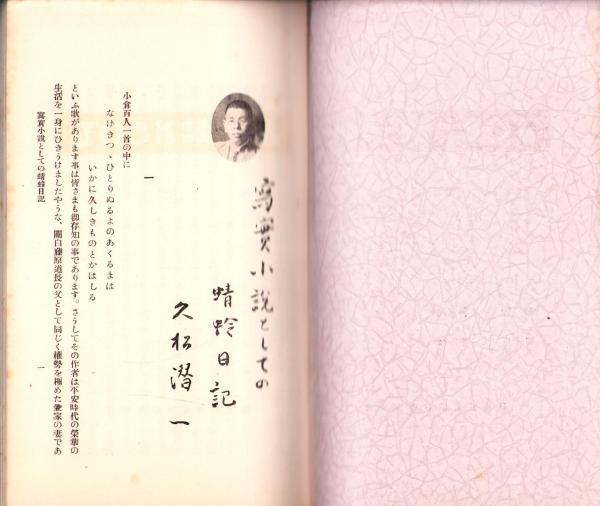 寫實小說としての
蜻蛉日記
久松潛一
一
小倉百人一首の中に
なげきつゝひとりぬるよのあくるまは
いかに久しきものとかはしる
といふ歌があります事は皆さまも御存知の事であります。さうしてその作者は平安時代の榮華の
生活を一身にひきうけましたやうな、關白藤原道長の父として同じく權勢を極めた兼家の妻であ
寫實小說としての蜻蛉日記
一